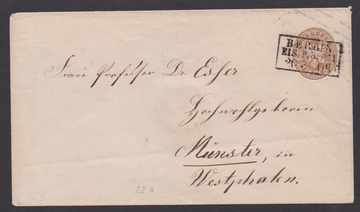 BERGEN
Frau Professor Dr. Esser
Hochwohlgeboren
Münster, in
Westphalen.